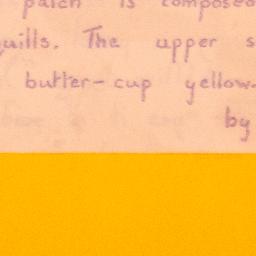 patch is composed
quills. The upper s
butter-cup yellow.
by